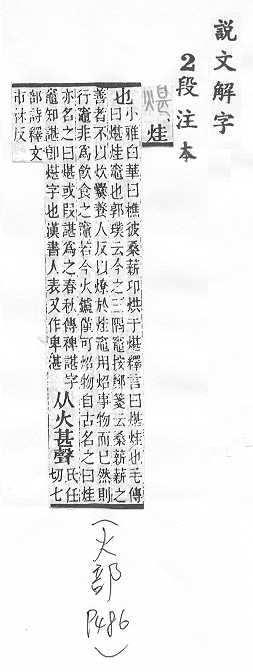 説文解字
2段注本
烓
也
小雅白華曰樵彼桑薪卬烘于煁釋言曰煁烓也毛傳
曰煁烓竈也郭璞云今之三隅竈按鄭箋云桑薪薪之
善者不以炊爨養人反以燎於烓竈用炤事物而已然則
行竈非爲飲食之竈若今火鑪僅可炤物自古名之曰烓
亦名之曰煁或叚諶爲之春秋傳裨諶字
竈知諶卽煁字也漢書人表又作卑湛
从火甚聲
氏任
切七
部詩釋文
市林反
(火部
P486)